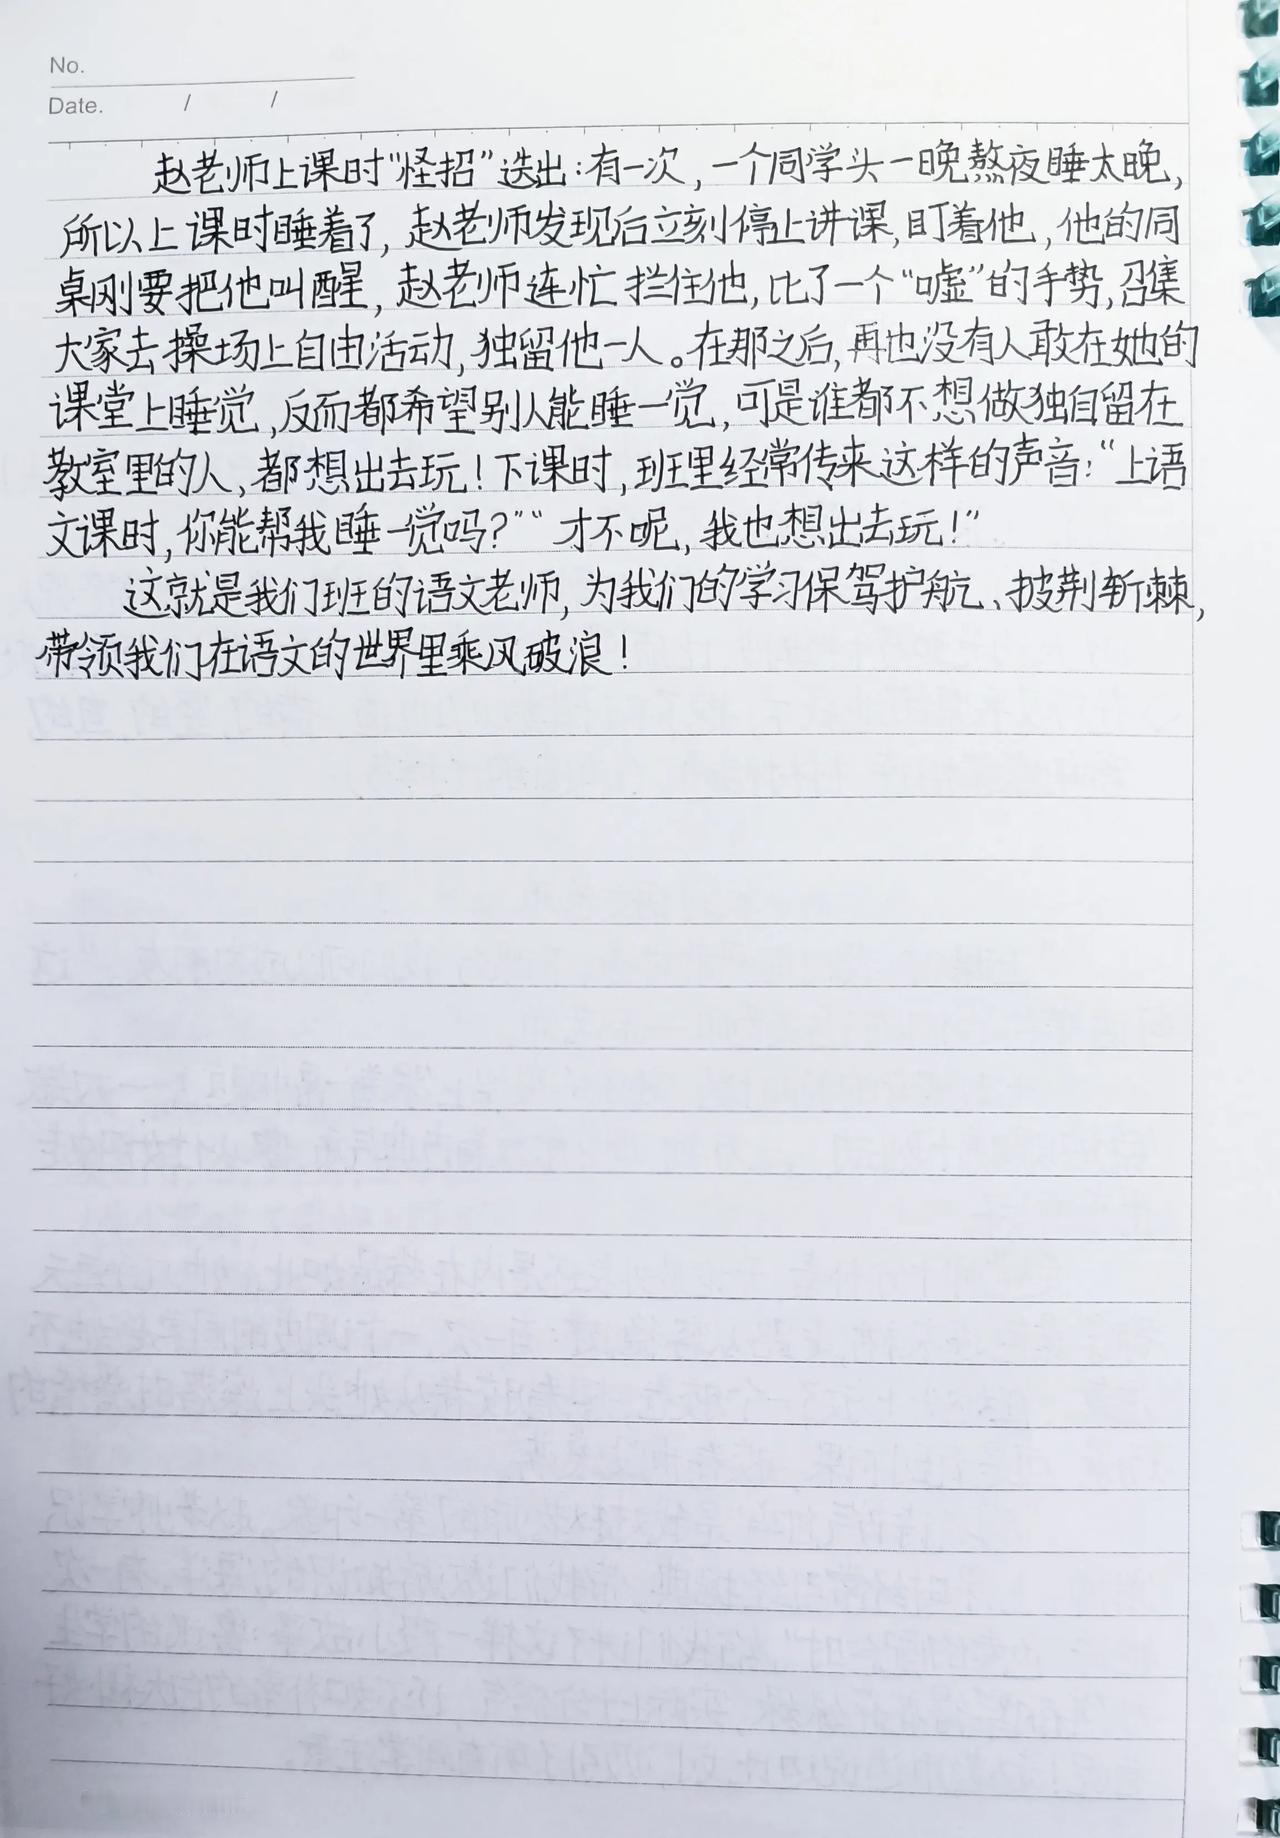 No.
Date. / /
赵老师上课时“怪招”迭出：有一次，一个同学头一晚熬夜睡太晚，
所以上课时睡着了，赵老师发现后立刻停止讲课，盯着他，他的同
桌刚要把他叫醒，赵老师连忙拦住他，比了一个“嘘”的手势，召集
大家去操场上自由活动，独留他一人。在那之后，再也没有人敢在她的
课堂上睡觉，反而都希望别人能睡一觉，可是谁都不想做独自留在
教室里的人，都想出去玩！下课时，班里经常传来这样的声音：“上语
文课时，你能帮我睡一觉吗？”“才不呢，我也想出去玩！”
这就是我们班的语文老师，为我们的学习保驾护航、披荆斩棘，
带领我们在语文的世界里乘风破浪！